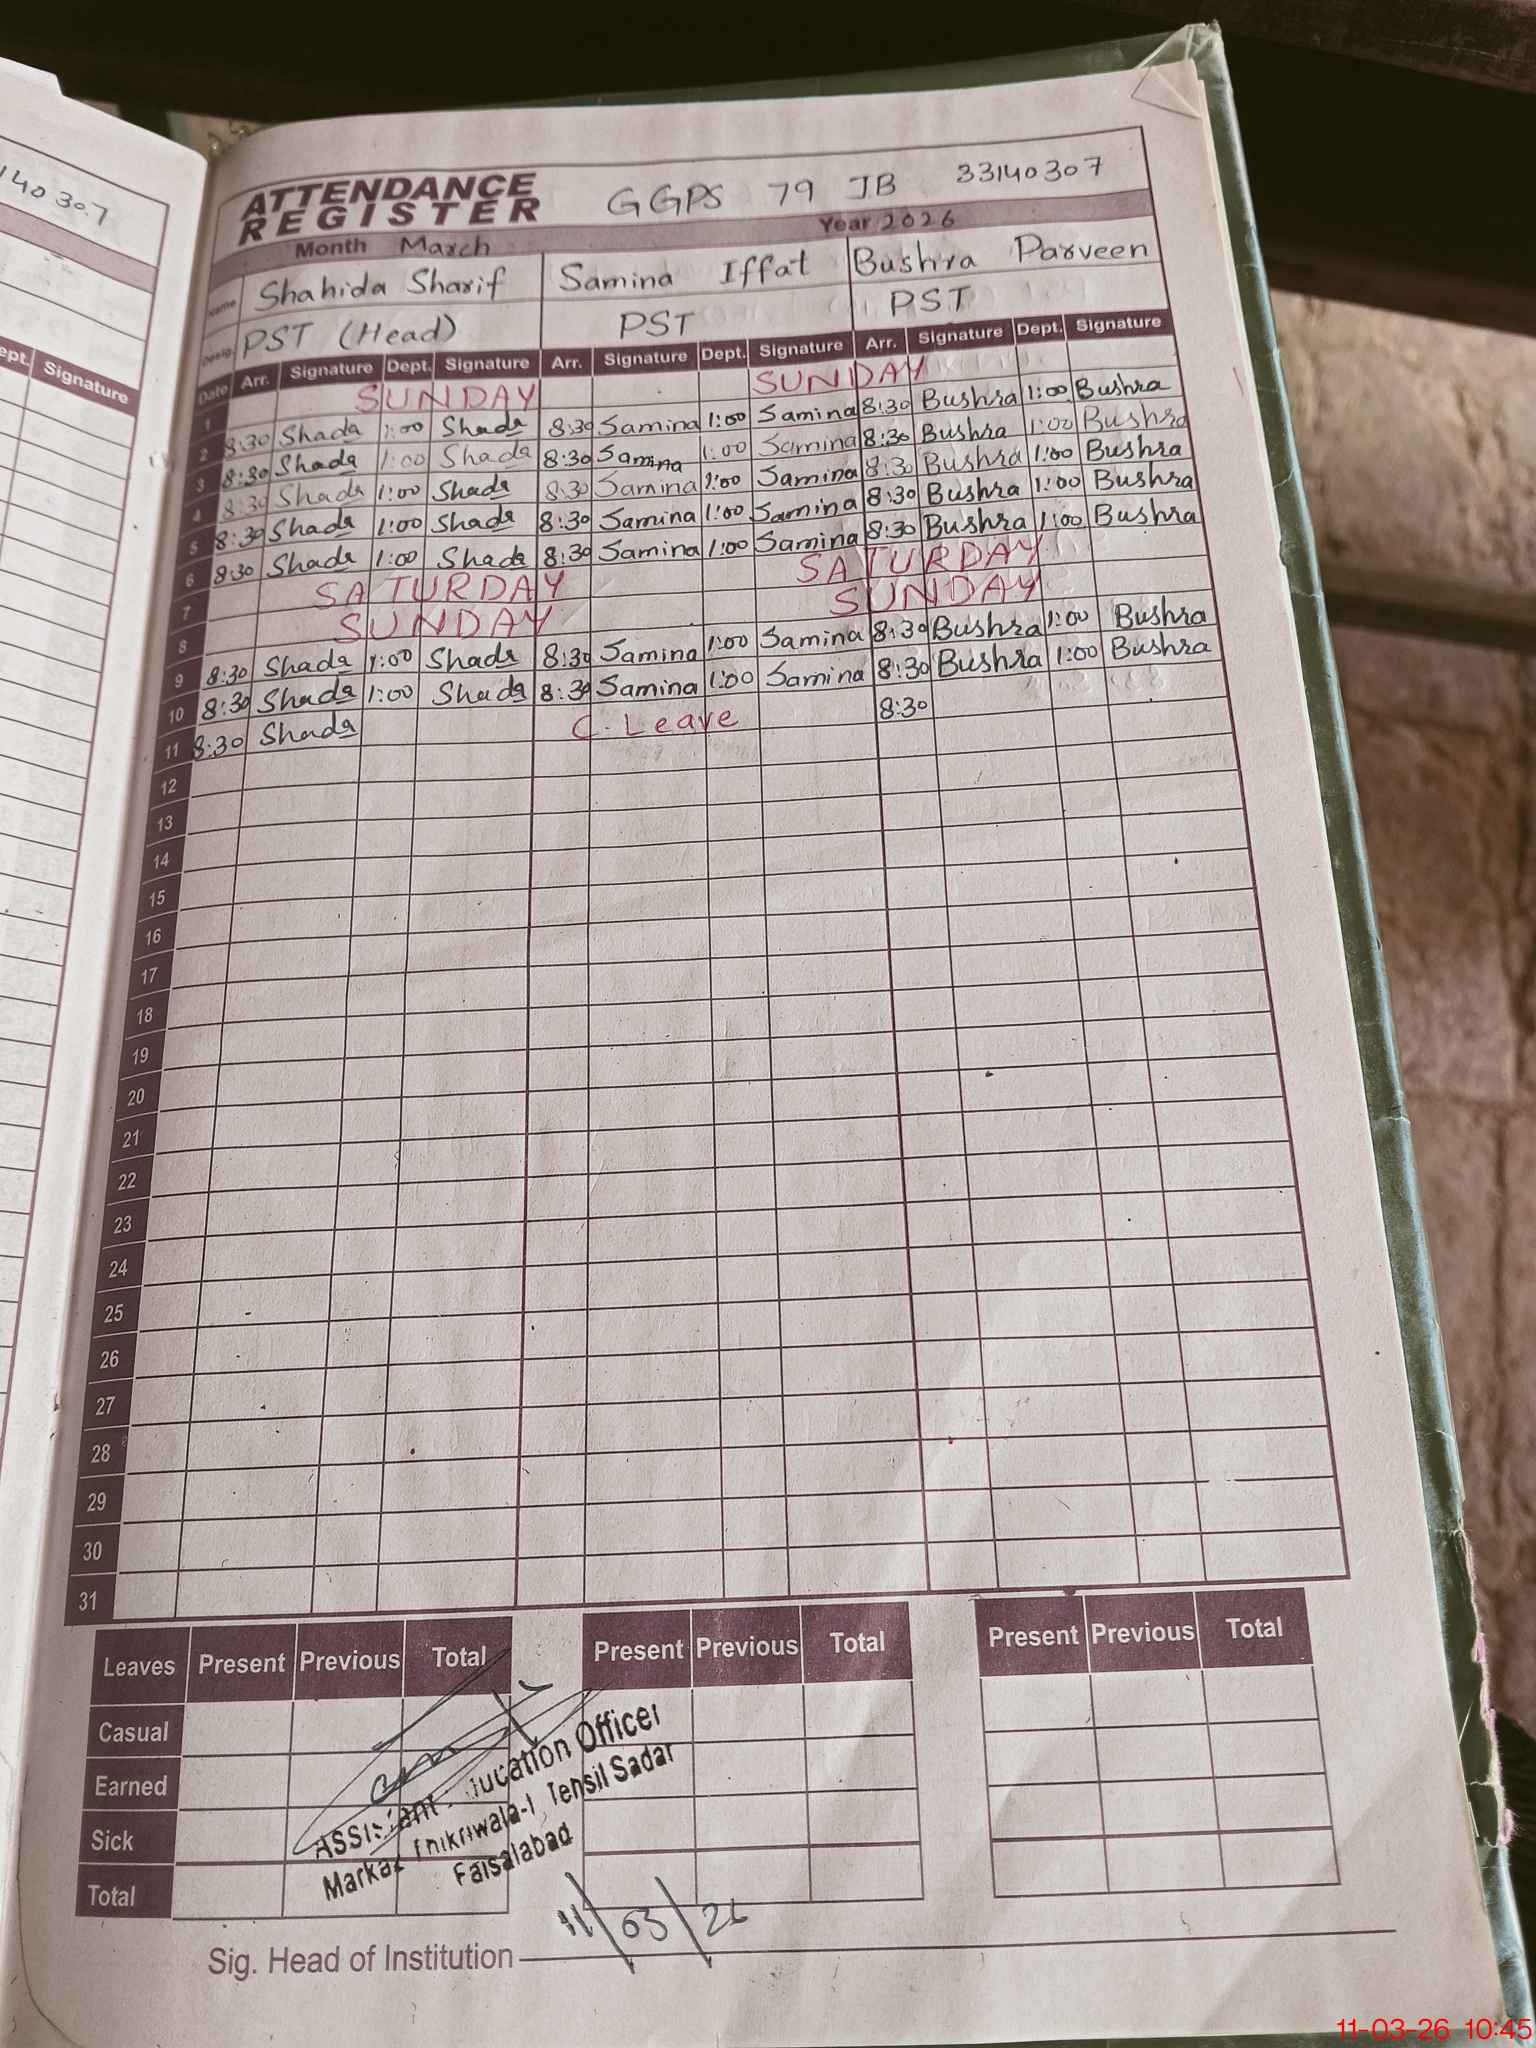 140307
ept. Signature
ATTENDANCE
REGISTER
GGPS 79 JB 33140307
Month March Year 2026
Name Shahida Sharif Samina Iffat Bushra Parveen
Desig. PST (Head) PST PST
Date Arr. Signature Dept. Signature Arr. Signature Dept. Signature Arr. Signature Dept. Signature
1 SUNDAY SUNDAY
2 8:30 Shada 1:00 Shada 8:30 Samina 1:00 Samina 8:30 Bushra 1:00 Bushra
3 8:30 Shada 1:00 Shada 8:30 Samina 1:00 Samina 8:30 Bushra 1:00 Bushra
4 8:30 Shada 1:00 Shada 8:30 Samina 1:00 Samina 8:30 Bushra 1:00 Bushra
5 8:30 Shada 1:00 Shada 8:30 Samina 1:00 Samina 8:30 Bushra 1:00 Bushra
6 8:30 Shada 1:00 Shada 8:30 Samina 1:00 Samina 8:30 Bushra 1:00 Bushra
7 SATURDAY SATURDAY
8 SUNDAY SUNDAY
9 8:30 Shada 1:00 Shada 8:30 Samina 1:00 Samina 8:30 Bushra 1:00 Bushra
10 8:30 Shada 1:00 Shada 8:30 Samina 1:00 Samina 8:30 Bushra 1:00 Bushra
11 8:30 Shada C. Leave 8:30
12
13
14
15
16
17
18
19
20
21
22
23
24
25
26
27
28
29
30
31
Leaves Present Previous Total Present Previous Total Present Previous Total
Casual
Earned
Sick
Total
Assistant Education Officer
Markaz Thikriwala-I Tehsil Sadar
Faisalabad
11/03/26
Sig. Head of Institution
11-03-26 10:45